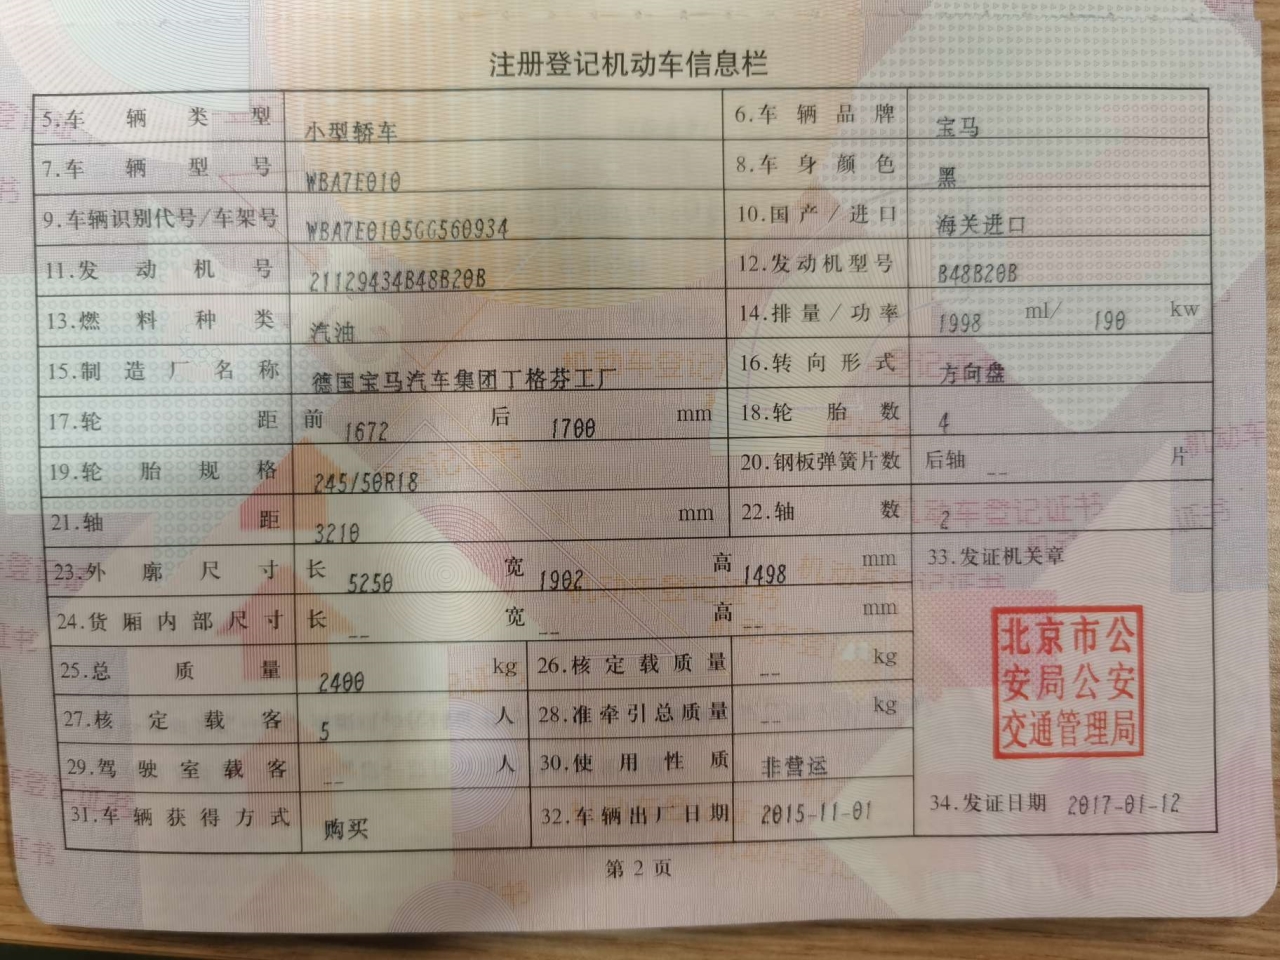 注册登记机动车信息栏
5.车辆类型 小型轿车 6.车辆品牌 宝马
7.车辆型号 WBA7E010 8.车身颜色 黑
9.车辆识别代号/车架号 WBA7E0105GG560934 10.国产/进口 海关进口
11.发动机号 21129434B48B20B 12.发动机型号 B48B20B
13.燃料种类 汽油 14.排量/功率 1998 ml/ 190 kw
15.制造厂名称 德国宝马汽车集团丁格芬工厂 16.转向形式 方向盘
17.轮距 前 1672 后 1700 mm 18.轮胎数 4
19.轮胎规格 245/50R18 20.钢板弹簧片数 后轴 -- 片
21.轴距 3210 mm 22.轴数 2
23.外廓尺寸 长 5250 宽 1902 高 1498 mm 33.发证机关章
24.货厢内部尺寸 长 -- 宽 -- 高 -- mm
北京市公
安局公安
交通管理局
25.总质量 2400 kg 26.核定载质量 -- kg
27.核定载客 5 人 28.准牵引总质量 -- kg
29.驾驶室载客 -- 人 30.使用性质 非营运
31.车辆获得方式 购买 32.车辆出厂日期 2015-11-01 34.发证日期 2017-01-12
第 2 页